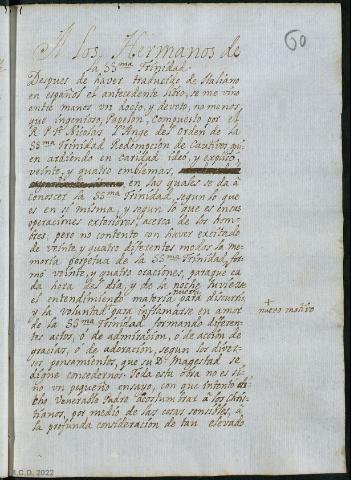 60
A los Hermanos de
la SS.ma Trinidad.
Despues de haver traducido de Italiano
en español el antecedente libro, se me vino
entre manos un docto, y devoto, no menos,
que ingenioso, Papelon, compuesto por el
R. P. Fr. Nicolas l'Ange del Orden de la
SS.ma Trinidad Redempcion de Cautivos, qui
en ardiendo en caridad ideò, y expuso
veinte, y quatro emblemas,
en las quales se da à
conocer la SS.ma Trinidad, segun lo que
es en si misma, y segun lo que es en sus
operaciones exteriores, acerca de los hom
bres; pero no contento con haver excitado
de veinte, y quatro diferentes modos la me
moria perpetua de la SS.ma Trinidad, for
mò veinte, y quatro oraciones, paraque ca
da hora del dia, y de la noche tuviesse
el entendimiento materia nueva para discurrir,
y la voluntad para inflamarse en amor
de la SS.ma Trinidad, formando diferen
tes actos, ò de admiracion, ò de accion de
gracias, ò de adoracion, segun los diver
sos pensamientos, que su D.a Magestad se
digne concedernos. Toda esta obra no es si
no un pequeño ensayo, con que intentò di
cho Venerable Padre acostumbrar à los Chris
tianos, por medio de las cosas sensibles, à
la profunda consideracion de tan elevado
+
nuevo motivo
A.C.O. 2022